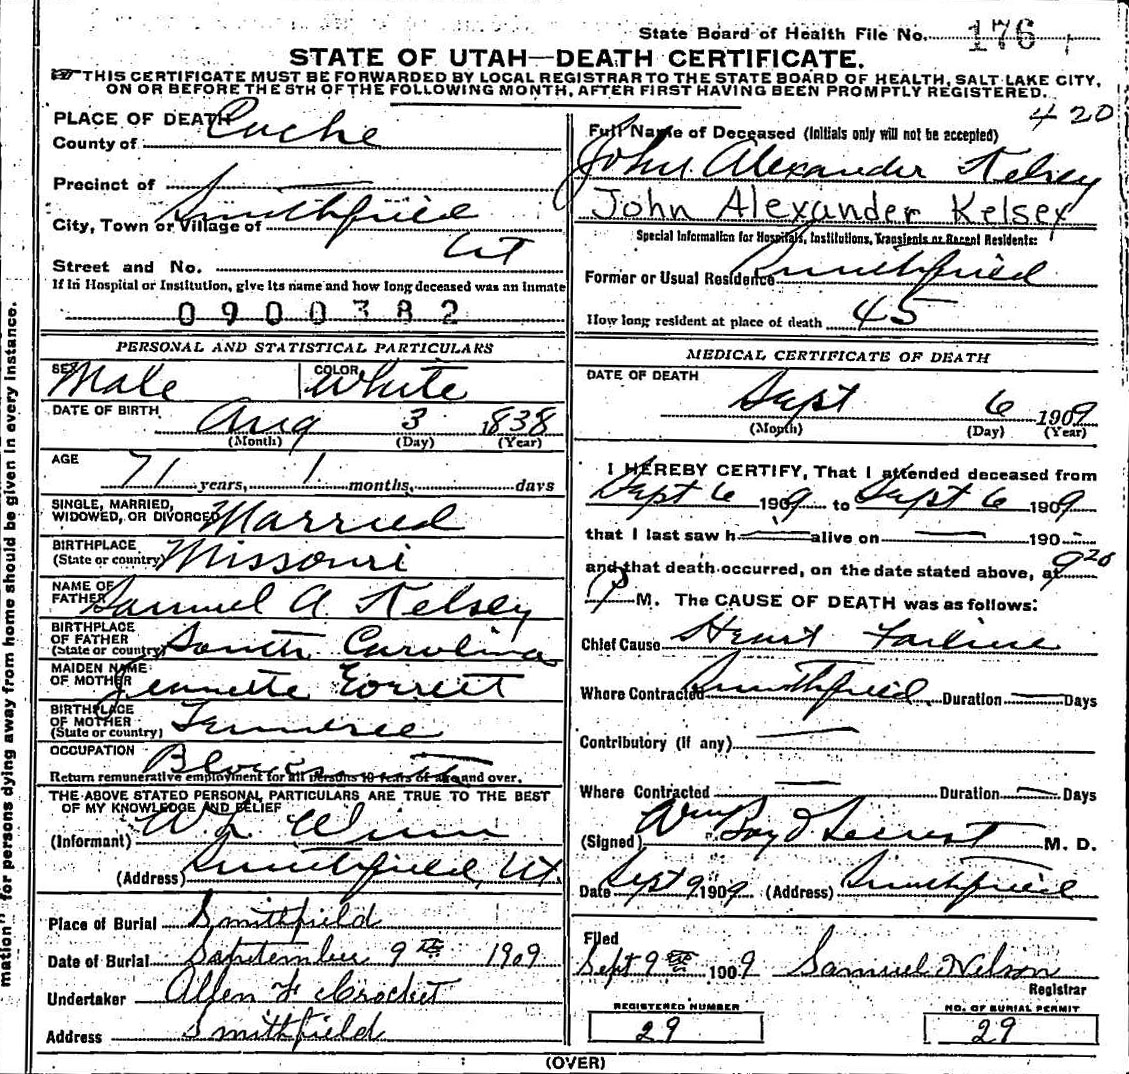 State Board of Health File No. 176
STATE OF UTAH—DEATH CERTIFICATE.
THIS CERTIFICATE MUST BE FORWARDED BY LOCAL REGISTRAR TO THE STATE BOARD OF HEALTH, SALT LAKE CITY,
ON OR BEFORE THE 5TH OF THE FOLLOWING MONTH, AFTER FIRST HAVING BEEN PROMPTLY REGISTERED.
420
PLACE OF DEATH
County of Cache
Precinct of
City, Town or Village of Smithfield
UT
Street and No.
If in Hospital or Institution, give its name and how long deceased was an inmate
0900382
Full Name of Deceased (Initials only will not be accepted)
John Alexander Kelsey
John Alexander Kelsey
Special Information for Hospitals, Institutions, Transients or Recent Residents:
Former or Usual Residence Smithfield
How long resident at place of death 45
PERSONAL AND STATISTICAL PARTICULARS
SEX Male COLOR White
DATE OF BIRTH Aug 3 1838
(Month) (Day) (Year)
AGE
71 years, 1 months, days
SINGLE, MARRIED,
WIDOWED, OR DIVORCED Married
BIRTHPLACE
(State or country) Missouri
NAME OF
FATHER Samuel A Kelsey
BIRTHPLACE
OF FATHER
(State or country) South Carolina
MAIDEN NAME
OF MOTHER Jeanette Everett
BIRTHPLACE
OF MOTHER
(State or country) Tennessee
OCCUPATION
Return remunerative employment for all persons 10 years of age and over.
THE ABOVE STATED PERSONAL PARTICULARS ARE TRUE TO THE BEST
OF MY KNOWLEDGE AND BELIEF
(Informant) W. L. Winn
(Address) Smithfield, Ut.
Place of Burial Smithfield
Date of Burial September 9th 1909
Undertaker Allen & Crockett
Address Smithfield
MEDICAL CERTIFICATE OF DEATH
DATE OF DEATH
Sept 6 1909
(Month) (Day) (Year)
I HEREBY CERTIFY, That I attended deceased from
Sept 6 1909 to Sept 6 1909
that I last saw h alive on 190
and that death occurred, on the date stated above, at 9 20
P M. The CAUSE OF DEATH was as follows:
Chief Cause Heart Failure
Where Contracted Smithfield Duration Days
Contributory (if any)
Where Contracted Duration Days
(Signed) Wm M. D.
Date Sept 9 1909 (Address) Smithfield
Filed
Sept 9th 1909 Samuel Nelson
Registrar
REGISTERED NUMBER
29
NO. OF BURIAL PERMIT
29
(OVER)
mation" for persons dying away from home should be given in every instance.